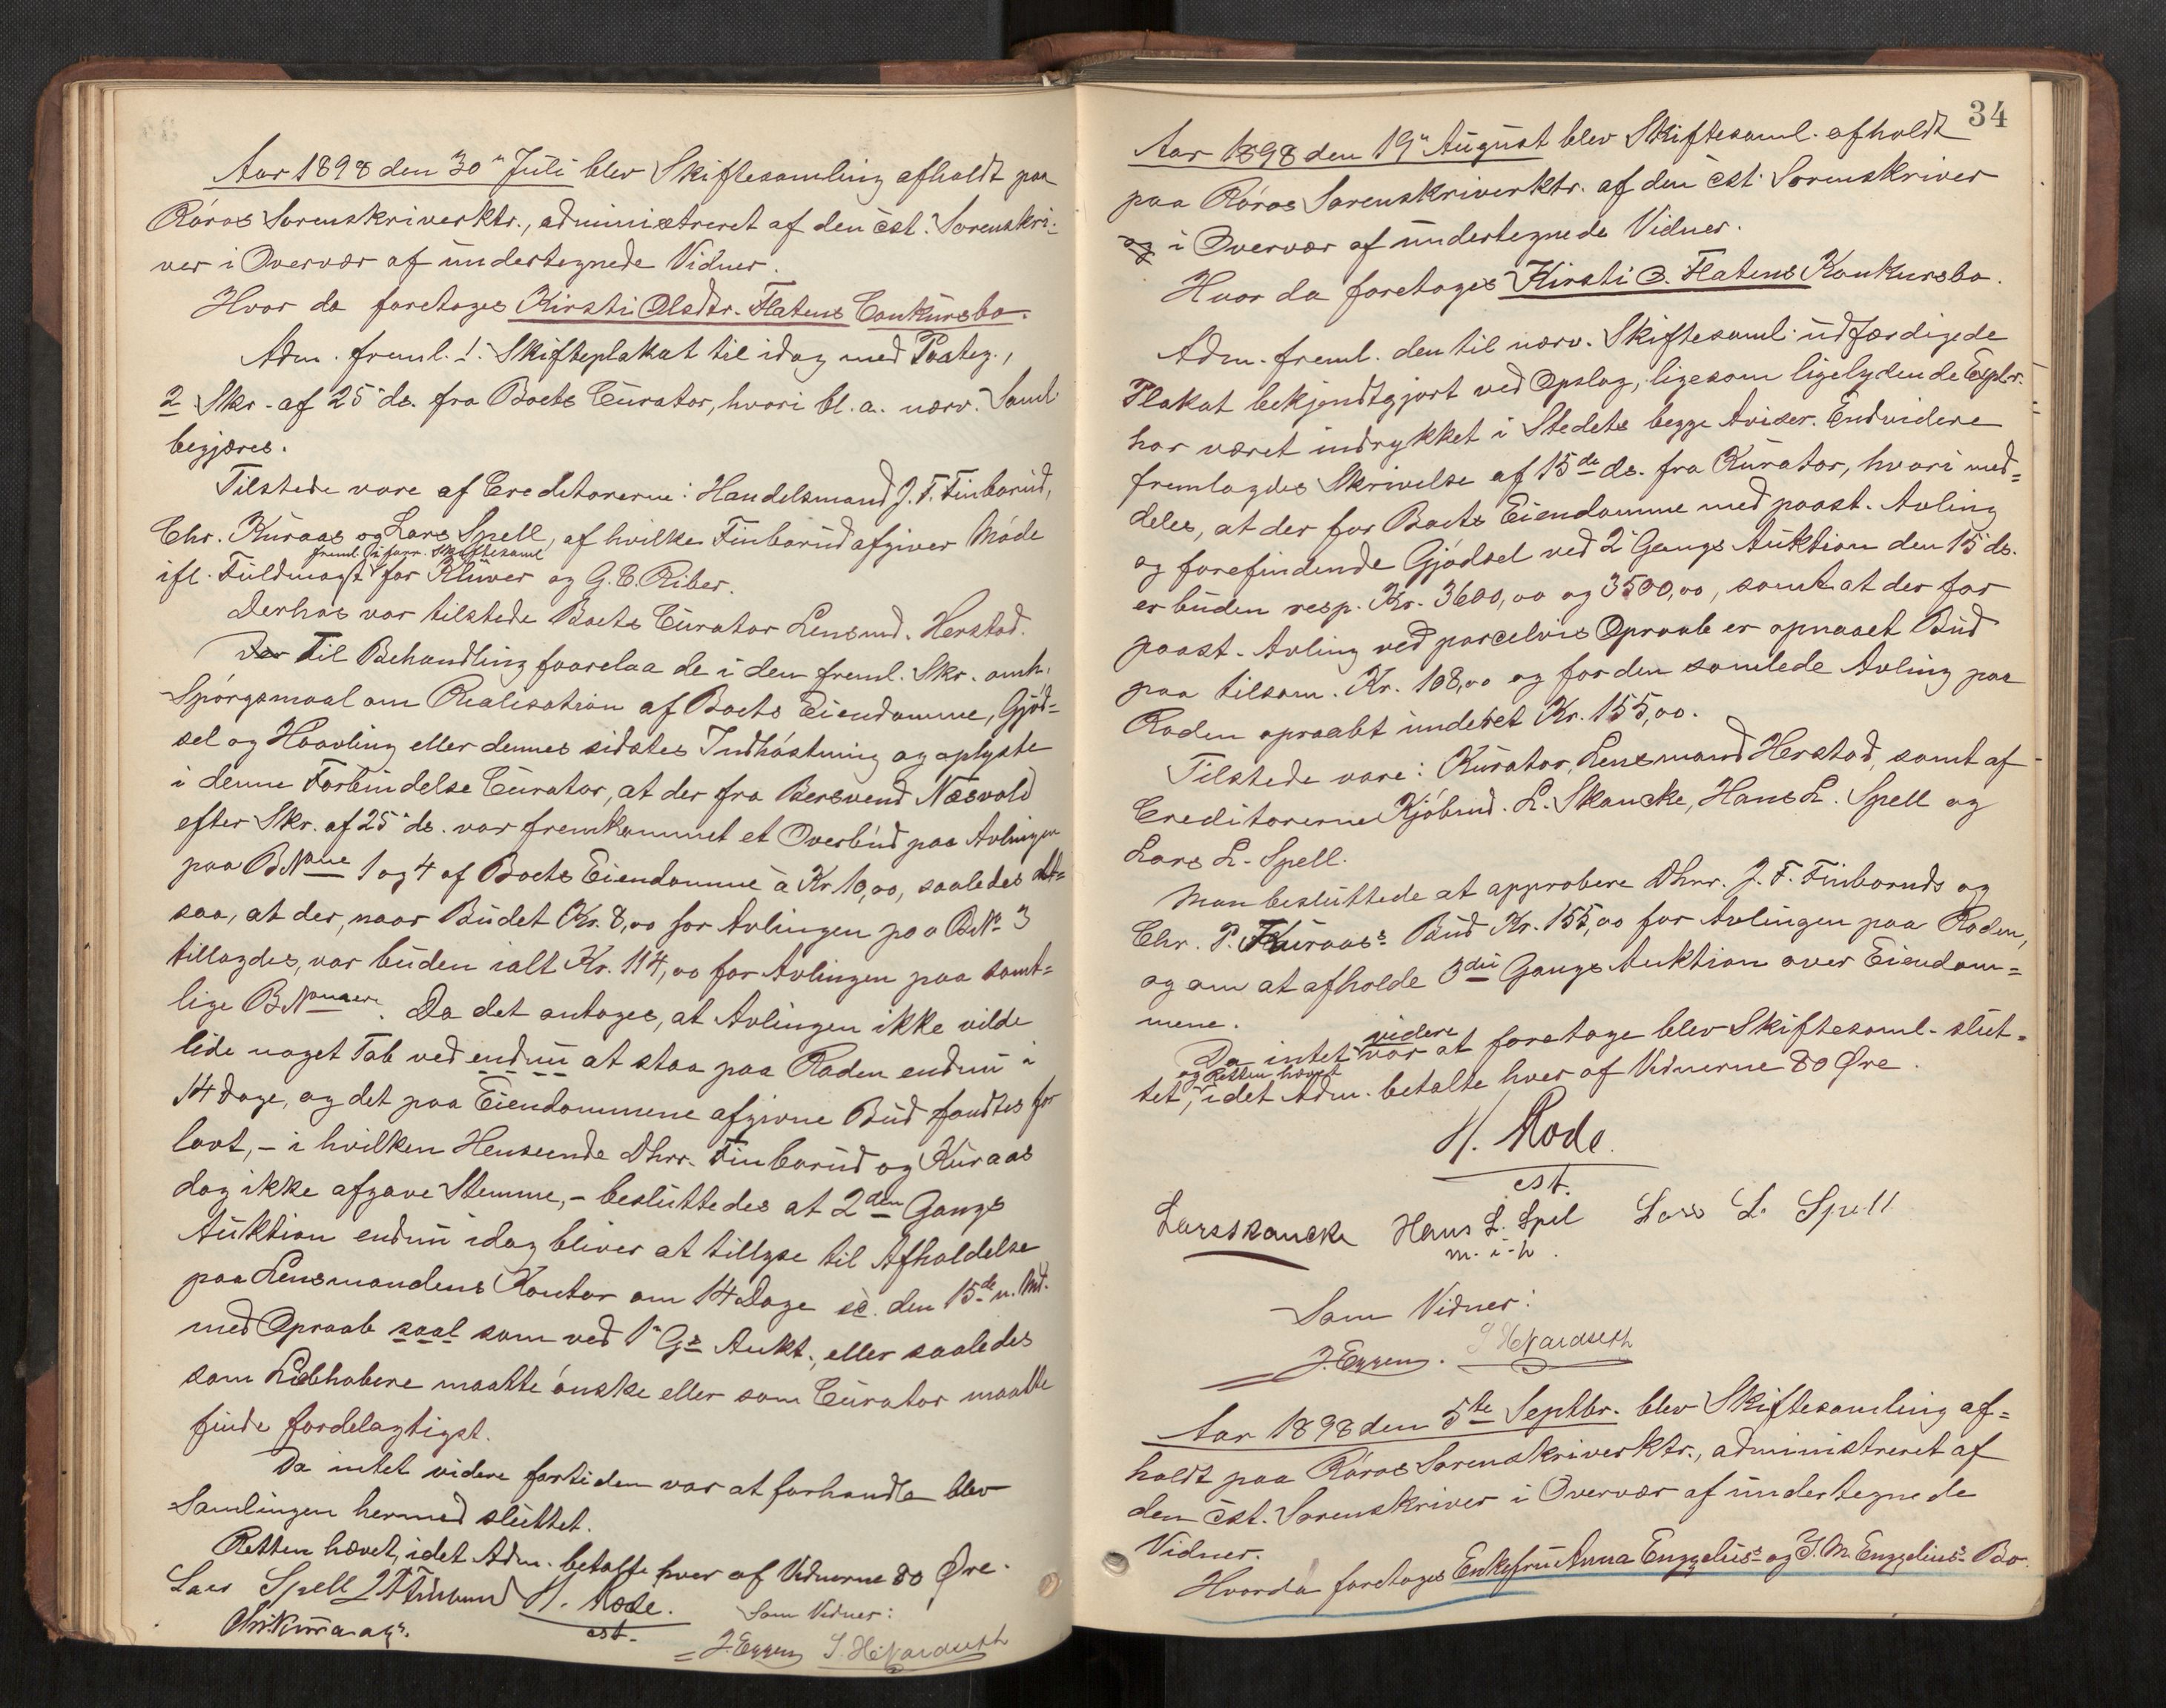 Aar 1898 den 30" Juli blev Skiftesamling afholdt paa
Röros Sorenskriverktr., administreret af den cst. Sorenskri-
ver i Overvær af undertegnede Vidner.
Hvor da foretoges Kirsti Olsdtr. Flatens Conkursbo.
Adm. freml. 1. Skifteplakat til idag med Paateg.,
2 Skr. af 25" ds. fra Boets Curator, hvori bl. a. nærv. Saml.
begjæres.
Tilstede vare af Creditorerne: Handelsmand J. F. Finborud,
Chr. Kuraas og Lars Spell, af hvilke Finborud afgiver Möde
freml. i forr. Skiftesaml.
ifl. Fuldmagt for Klüver og G. C. Riber.
Derhos var tilstede Boets Curator Lensmd. Herstad.
Der Til Behandling foorelaa de i den freml. Skr. omh.
Spörgsmaal om Realisation af Boets Eiendomme, Gjöd=
sel og Hoavling eller dennes sidstes Indhöstning og oplyste
i denne Forbindelse Curator, at der fra Bersvend Næsvold
efter Skr. af 25" ds. var fremkommet et Overbud paa Avlingen
paa BNone 1 og 4 af Boets Eiendomme à Kr. 10,00, saaledes alt=
saa, at der, naar Budet Kr. 8,00 for Avlingen paa BN° 3
tillagdes, var buden ialt Kr. 114,00 for Avlingen paa samt=
lige BNumere. Da det antoges, at Avlingen ikke vilde
lide noget Tab ved endnu at staa paa Roden endnu i
14 Dage, og det paa Eiendommene afgivne Bud fandtes for
lavt, – i hvilken Henseende Dhrr. Finborud og Kuraas
dog ikke afgave Stemme, – besluttedes at 2den Gangs
Auktion endnu idag bliver at tillyse til Afholdelse
paa Lensmandens Kontor om 14 Dage sc. den 15de n. Md.
med Opraab saal som ved 1" Gs Aukt., eller saaledes
som Liebhabere maatte önske eller som Curator maatte
finde fordelagtigst.
Da intet videre fortiden var at forhandle blev
Samlingen hermed sluttet.
Retten hævet, idet Adm. betalte hver af Vidnerne 80 Øre.
Lars Spell J F Finborud H. Rode.
cst.
Chr. Kuraas.
Som Vidner:
J. Eggen

34
Aar 1898 den 19" August blev Skiftesaml. afholdt
paa Röros Sorenskriverktr. af den cst. Sorenskriver
og i Overvær af undertegnede Vidner.
Hvor da foretoges Kirsti O. Flatens Konkursbo.
Adm. freml. den til nærv. Skiftesaml. udfærdigede
Plakat bekjendtgjort ved Opslag, ligesom ligelydende Explr.
har været indrykket i Stedets begge Aviser. Endvidere
fremlagdes Skrivelse af 15de ds. fra Kurator, hvori med=
deles, at der for Boets Eiendomme med paast. Avling
og forefindende Gjödsel ved 2" Gangs Auktion den 15" ds.
er buden resp. Kr. 3600,00 og 3500,00, samt at der for
paast. Avling ved parcelvis Opraab er opnaaet Bud
paa tilsam. Kr. 108,00 og for den samlede Avling paa
Roden opraabt underet Kr. 155,00.
Tilstede vare: Kurator, Lensmand Herstad, samt af
Creditorerne Kjöbmd. L. Skancke, Hans L. Spell og
Lars L. Spell.
Man besluttede at approbere Dhrr. J. F. Finboruds og
Chr. P. Kuraas's Bud Kr. 155,00 for Avlingen paa Roden,
og om at afholde 3die Gangs Auktion over Eiendom=
mene.
videre
Da intet var at foretage blev Skiftesaml. slut=
og Retten hævet
tet, idet Adm. betalte hver af Vidnerne 80 Øre.
H. Rode.
cst.
Lars Skancke Hans L. Spel Lars L. Spell
m. i. h.
Som Vidner:
J. Eggen.
Aar 1898 den 5te Septbr. blev Skiftesamling af=
holdt paa Röros Sorenskriverktr., administreret af
den cst. Sorenskriver i Overvær af undertegnede
Vidner.
Hvorda foretoges Enkefru Anna Engzelius's og J. M. Engzelius's Bo.